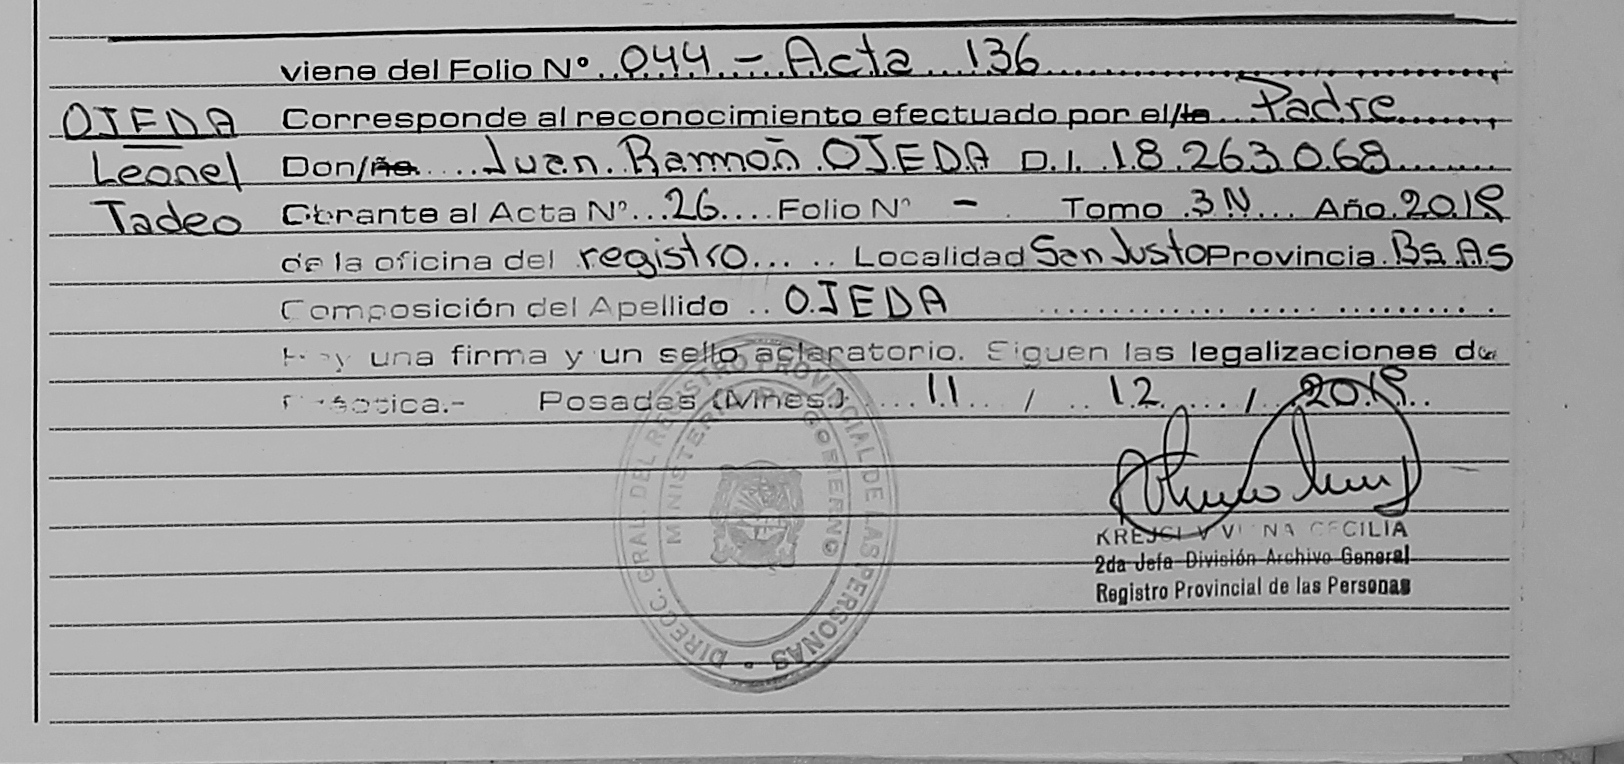 viene del Folio Nº 044 - Acta 136
OJEDA Corresponde al reconocimiento efectuado por el/la Padre
Leonel Don/ña Juan Ramón OJEDA D.I. 18.263.068
Tadeo Obrante al Acta Nº 26 Folio Nº - Tomo 3N Año 2019
de la oficina del registro Localidad San Justo Provincia Bs.As
Composición del Apellido OJEDA
Hay una firma y un sello aclaratorio. Siguen las legalizaciones de
práctica.- Posadas (Mnes.) 11 / 12 / 2019
DIRECC. GRAL. DEL REGISTRO PROVINCIAL DE LAS PERSONAS
MINISTERIO DE GOBIERNO
KREJCI V VIVIANA CECILIA
2da Jefa División Archivo General
Registro Provincial de las Personas